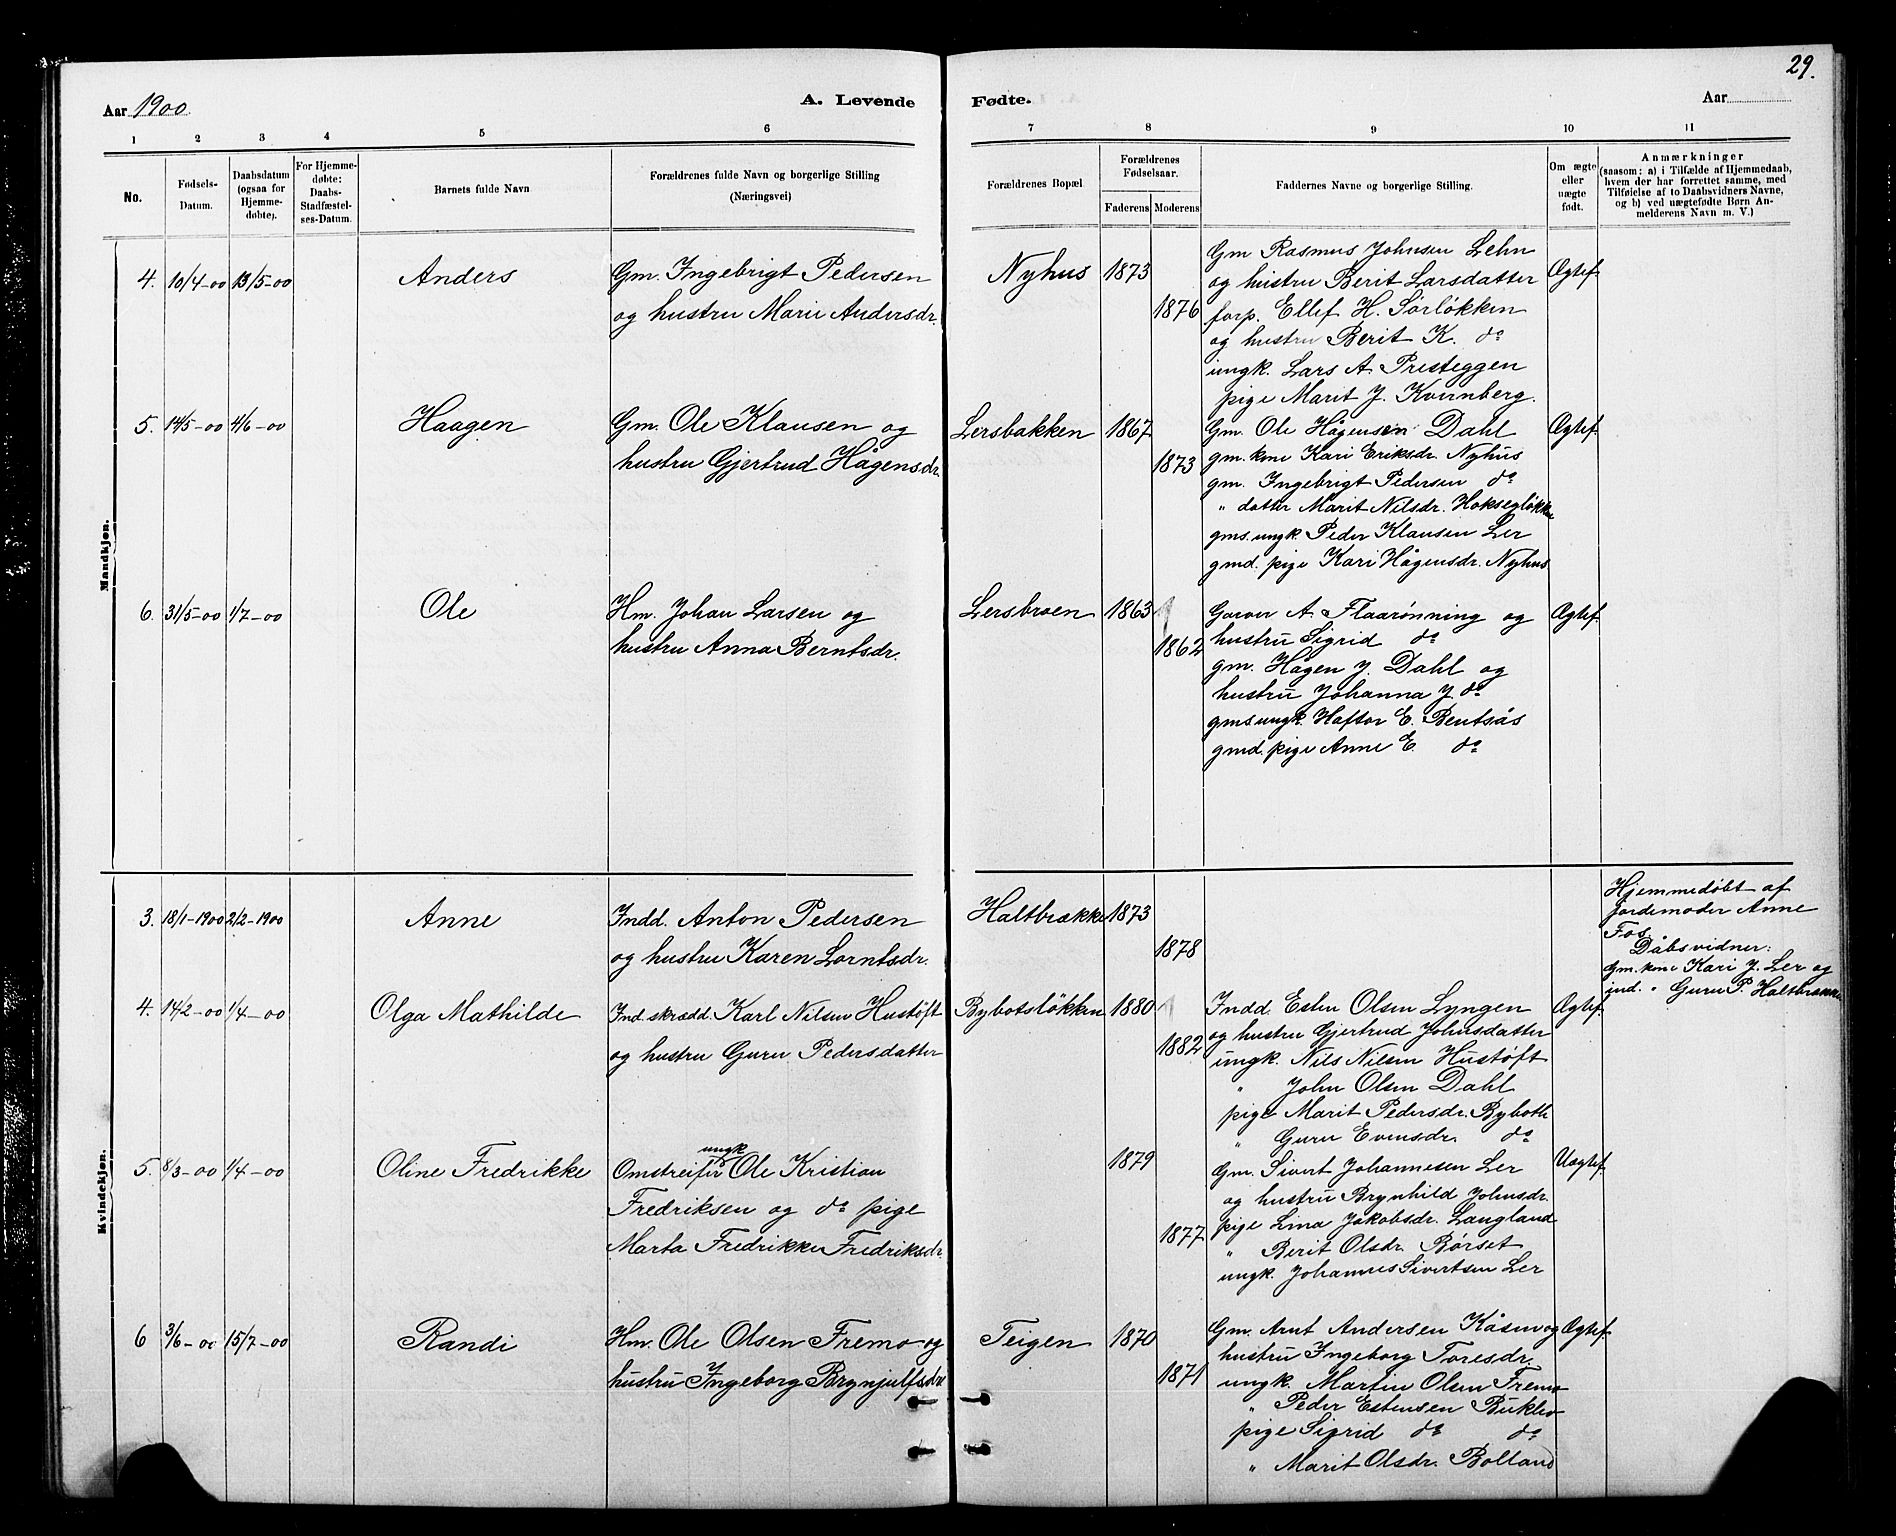 29.
Aar 1900. A. Levende Fødte. Aar
1 2 3 4 5 6 7 8 9 10 11
No.
Fødsels-Datum.
Daabsdatum (ogsaa for Hjemmedøbte).
For Hjemmedøbte: Daabs-Stadfæstelses-Datum.
Barnets fulde Navn
Forældrenes fulde Navn og borgerlige Stilling
(Næringsvei)
Forældrenes Bopæl
Forældrenes Fødselsaar.
Faderens Moderens
Faddernes Navne og borgerlige Stilling.
Om ægte eller uægte født.
Anmærkninger
(saasom: a) i Tilfælde af Hjemmedaab,
hvem der har forrettet samme, med
Tilføielse af to Daabsvidners Navne,
og b) ved uægtefødte Børn An-
melderens Navn m. V.)
Mandkjøn.
4. 10/4-00 13/5-00 Anders
Gm. Ingebrigt Pedersen
og hustru Marie Andersdr.
Nyhus 1873
1876
Gm Rasmus Johnsen Lehn
og hustru Berit Larsdatter
forp. Ellef H. Sørløkken
og hustru Berit K. do
ungk. Lars A. Presteggen
pige Marit J. Kvernberg.
Ægtef.
5. 14/5-00 4/6-00 Haagen
Gm. Ole Klausen og
hustru Gjertrud Hågensdr.
Lersbakken 1867
1873
Gm. Ole Hågensen Dahl
gm. kone Kari Eriksdr. Nyhus
gm. Ingebrigt Pedersen do
" datter Marit Nilsdr. Hoksegløkken
gms. ungk. Peder Klausen Ler
gmd. pige Kari Hågensdr. Nyhus
Ægtef.
6. 31/5-00 1/7-00 Ole
Hm. Johan Larsen og
hustru Anna Berntsdr.
Lersbroen 1863
1862
Garver A. Flaarønning og
hustru Sigrid do
gm. Hågen J. Dahl og
hustru Johanna J. do
gms. ungk. Haftor E. Bentsås
gmd. pige Anne E do
Ægtef.
Kvindekjøn.
3. 18/1-1900 2/2-1900 Anne
Indd. Anton Pedersen
og hustru Karen Lorntsdr.
Haltbrækken 1873
1878
Hjemmedøbt af
jordemoder Anne
Fos.
Dåbsvidner:
gm. kone Kari J. Ler og
ind. " Guru P. Haltbrækken
4. 14/2-00 1/4-00 Olga Mathilde
Ind. skrædd. Karl Nilsen Hustøft
og hustru Guru Pedersdatter
Bybotsløkken 1880
1882
Indd. Esten Olsen Lyngen
og hustru Gjertrud Johnsdatter
ungk. Nils Nilsen Hustøft
" John Olsen Dahl
pige Marit Pedersdr. Byboth
" Guru Evensdr. do
Ægtef.
5. 8/3-00 1/4-00 Oline Fredrikke
ungk
Omstreifer Ole Kristian
Fredriksen og do pige
Marta Fredrikke Fredriksdr.
1879
1877
Gm. Sivert Johannesen Ler
og hustru Brynhild Johnsdr.
pige Lina Jakobsdr. Langland
" Berit Olsdr. Børset
ungk. Johannes Sivertsen Ler
Uægtef.
6 3/6-00 15/7-00 Randi
Hm. Ole Olsen Fremo og
hustru Ingeborg Brynjulfsdr
Teigen 1870
1871
Gm. Arnt Andersen Kåsmo og
hustru Ingeborg Toresdr.
ungk. Martin Olsen Fremo
" Peder Estensen Buklev
pige Sigrid do do
" Marit Olsdr. Bolland
Ægtef.